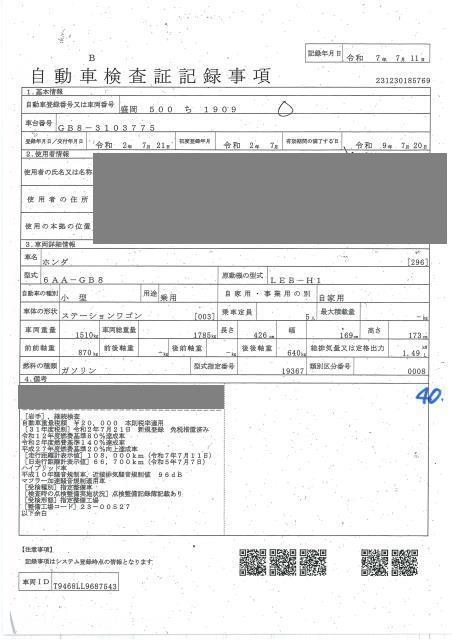 B
記録年月日 令和 7年 7月11日
自動車検査証記録事項
231230185769
1.基本情報
自動車登録番号又は車両番号 盛岡 500 ち 1909
車台番号 GB8-3103775
登録年月日/交付年月日 令和 2年 7月21日 初度登録年月 令和 2年 7月 有効期間の満了する日 令和 9年 7月20日
2.使用者情報
使用者の氏名又は名称
使用者の住所
使用の本拠の位置
3.車両詳細情報
車名 ホンダ [296]
型式 6AA-GB8 原動機の型式 LEB-H1
自動車の種別 小型 用途 乗用 自家用・事業用の別 自家用
車体の形状 ステーションワゴン [003] 乗車定員 5人 最大積載量 -kg
車両重量 1510kg 車両総重量 1785kg 長さ 426cm 幅 169cm 高さ 173cm
前前軸重 870kg 前後軸重 -kg 後前軸重 -kg 後後軸重 640kg 総排気量又は定格出力 1.49L
燃料の種類 ガソリン 型式指定番号 19367 類別区分番号 0008
4.備考
40.
[岩手],継続検査
自動車重量税額 ¥20,000 本則税率適用
[31年度税制]令和2年7月21日 新規登録 免税措置済み
令和12年度燃費基準80%達成車
令和2年度燃費基準140%達成車
平成27年度燃費基準20%向上達成車
[走行距離計表示値]108,000km(令和7年7月11日)
[旧走行距離計表示値]66,700km(令和5年7月7日)
ハイブリッド車
平成10年騒音規制車、近接排気騒音規制値 96dB
マフラー加速騒音規制適用車
[受検種別]指定整備車
[検査時の点検整備実施状況]点検整備記録簿記載あり
[受検形態]指定整備工場
[整備工場コード]23-00527
以下余白
【注意事項】
記録事項はシステム登録時点の情報となります
車両ID T9468LL9687543